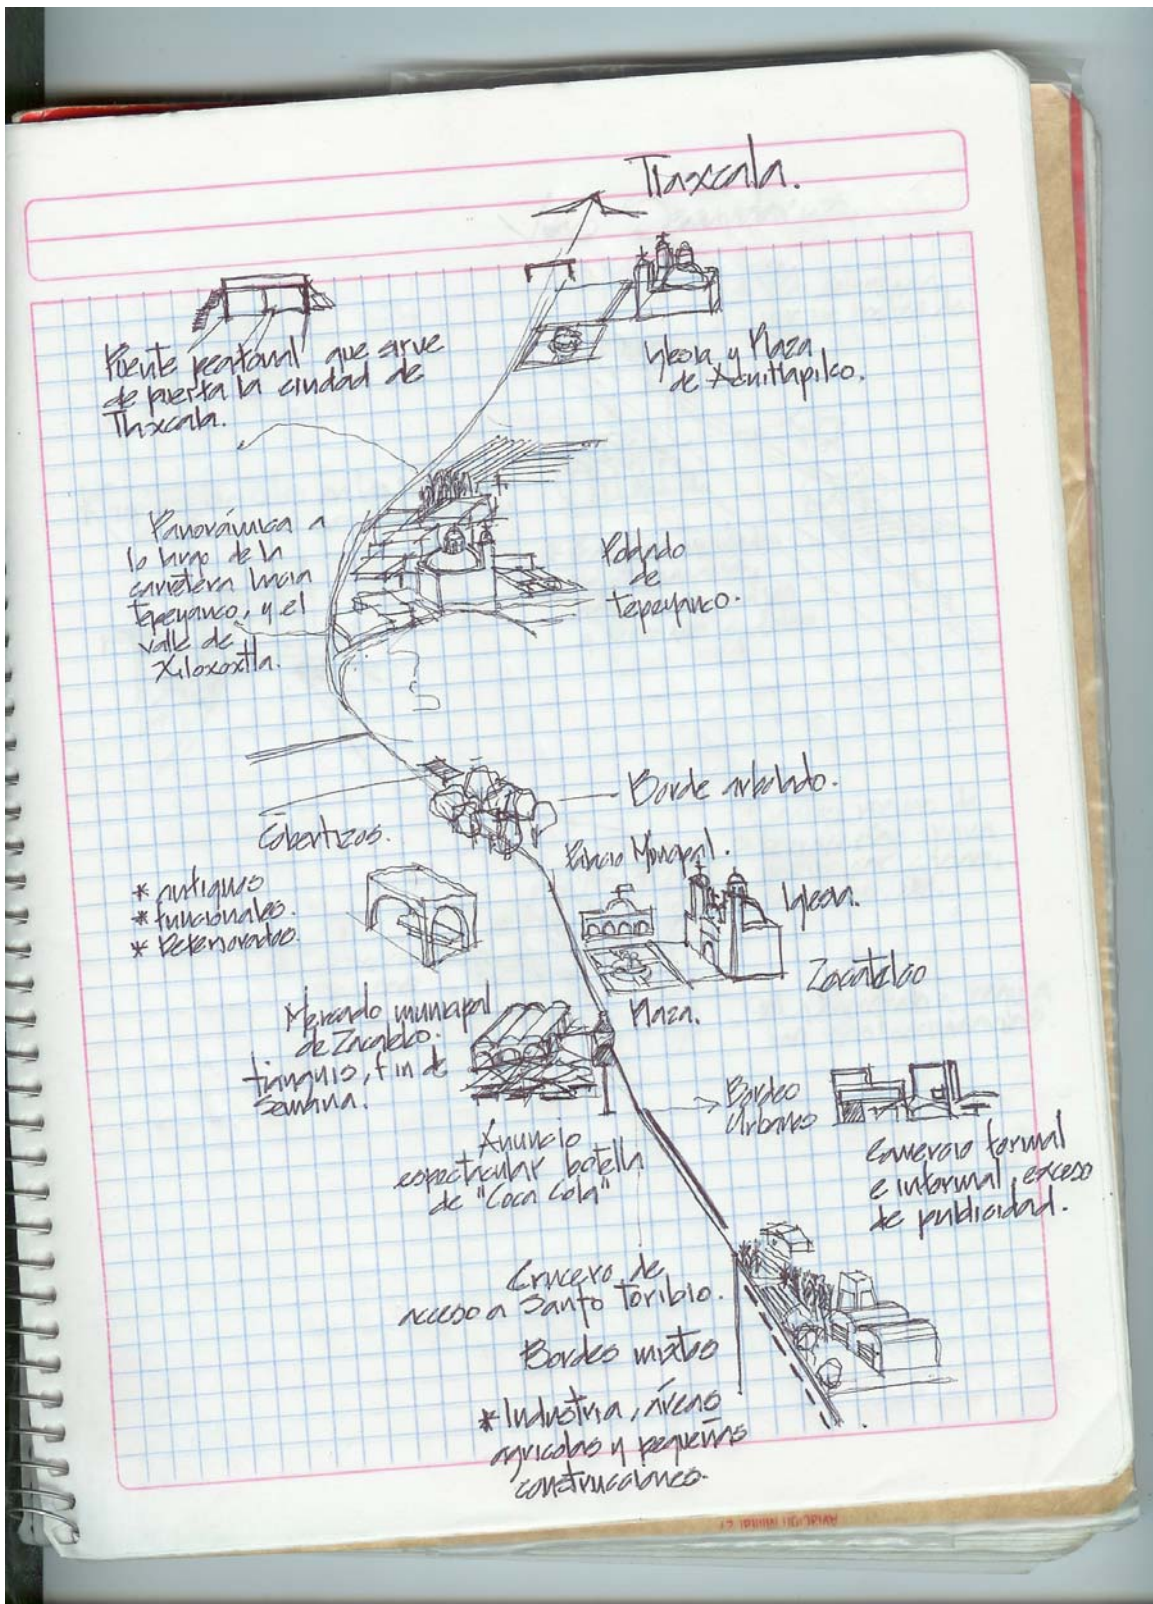 Tlaxcala.
Puente peatonal que sirve
de puerta la ciudad de
Tlaxcala.
Iglesia y Plaza
de Acuitlapilco.
Panorámica a
lo largo de la
carretera hacia
tepeyanco, y el
valle de
Xiloxoxtla.
Poblado
de
tepeyanco.
Borde arbolado.
Cobertizos.
* antiguos
* funcionales.
* Deteriorados.
Palacio Municipal.
Iglesia.
Zacatelco
Plaza.
Mercado municipal
de Zacatelco.
tianguis, fin de
semana.
Bordes
Urbanos
Comercio formal
e informal, exceso
de publicidad.
Anuncio
espectacular botella
de "Coca Cola"
Crucero de
acceso a Santo Toribio.
Bordes mixtos
* Industria, áreas
agricolas y pequeñas
construcciones.